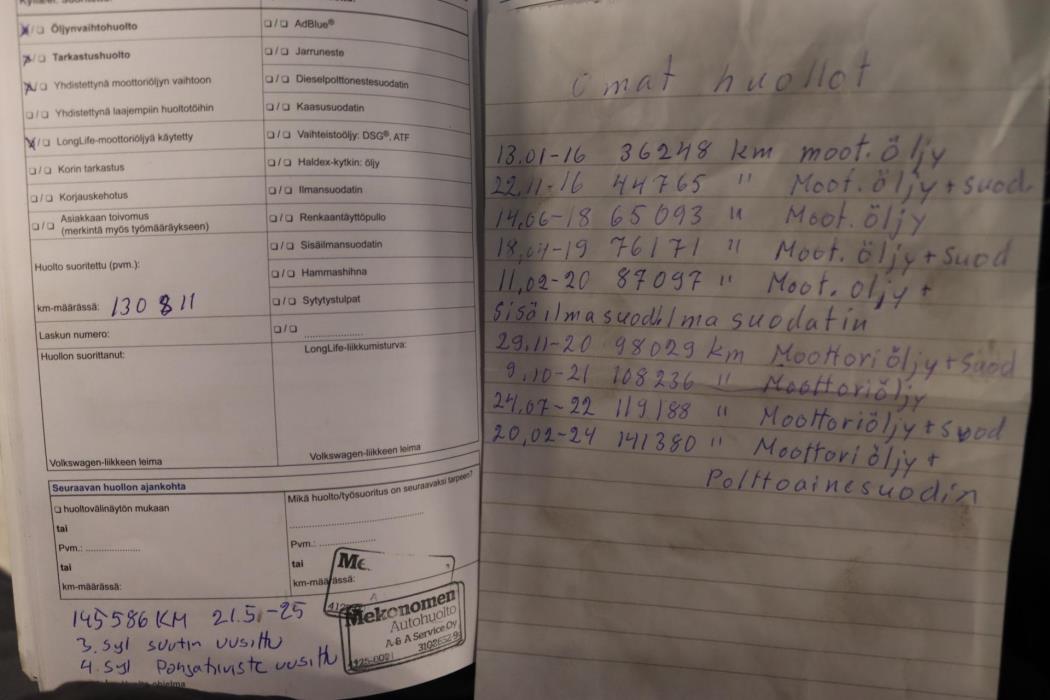 ☒/☐ Öljynvaihtohuolto
☒/☐ Tarkastushuolto
☒/☐ Yhdistettynä moottoriöljyn vaihtoon
☐/☐ Yhdistettynä laajempiin huoltotöihin
☒/☐ LongLife-moottoriöljyä käytetty
☐/☐ Korin tarkastus
☐/☐ Korjauskehotus
☐/☐ Asiakkaan toivomus
(merkintä myös työmääräykseen)
Huolto suoritettu (pvm.):
km-määrässä: 130 811
Laskun numero:
Huollon suorittanut:
Volkswagen-liikkeen leima
☐/☐ AdBlue®
☐/☐ Jarruneste
☐/☐ Dieselpolttonestesuodatin
☐/☐ Kaasusuodatin
☐/☐ Vaihteistoöljy: DSG®, ATF
☐/☐ Haldex-kytkin: öljy
☐/☐ Ilmansuodatin
☐/☐ Renkaantäyttöpullo
☐/☐ Sisäilmansuodatin
☐/☐ Hammashihna
☐/☐ Sytytystulpat
☐/☐ ....................
LongLife-liikkumisturva:
Volkswagen-liikkeen leima
Seuraavan huollon ajankohta
☐ huoltovälinäytön mukaan
tai
Pvm.: ....................
tai
km-määrässä:
Mikä huolto/työsuoritus on seuraavaksi tarpeen?
Pvm.: ....................
tai
km-määrässä:
Mekonomen
Autohuolto
A & A Service Oy
145586 KM 21.5.-25
3. syl suutin uusittu
4. syl Pohjatiiviste uusittu
omat huollot
13.01-16 36248 km moot. öljy
22.11-16 44765 " Moot. öljy + suod.
14.06-18 65093 " Moot. öljy
18.07-19 76171 " Moot. öljy + suod
11.02-20 87097 " Moot. öljy +
Sisäilmasuod. ilmasuodatin
29.11-20 98029 km Moottoriöljy + suod
9.10-21 108236 " Moottoriöljy
24.07-22 119188 " Moottoriöljy + suod
20,02-24 141380 " Moottoriöljy +
Polttoainesuodin